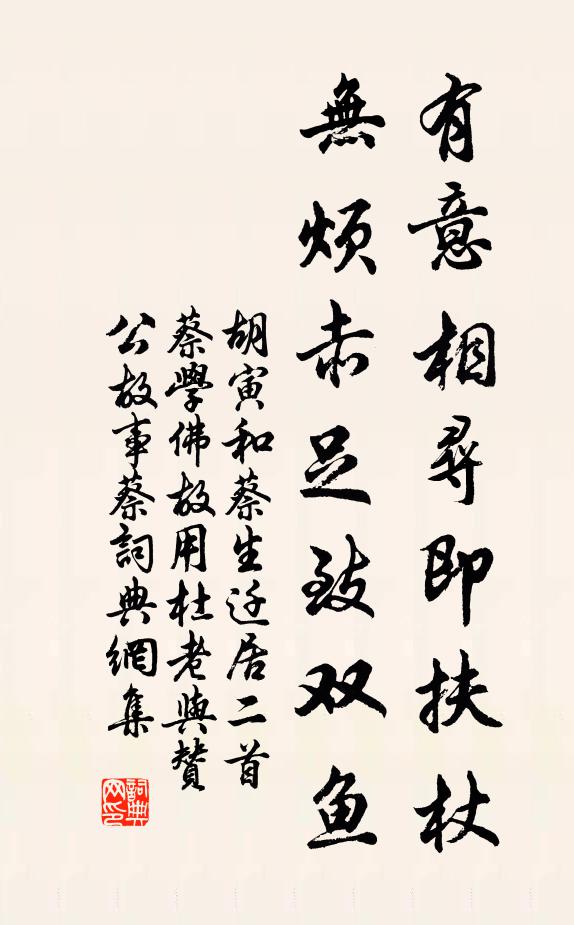 有意相尋即扶杖
無煩赤足致双鱼
胡寅和蔡生迁居二首
蔡學佛故用杜老與贊
公故事蔡詞典網集
詞典网印